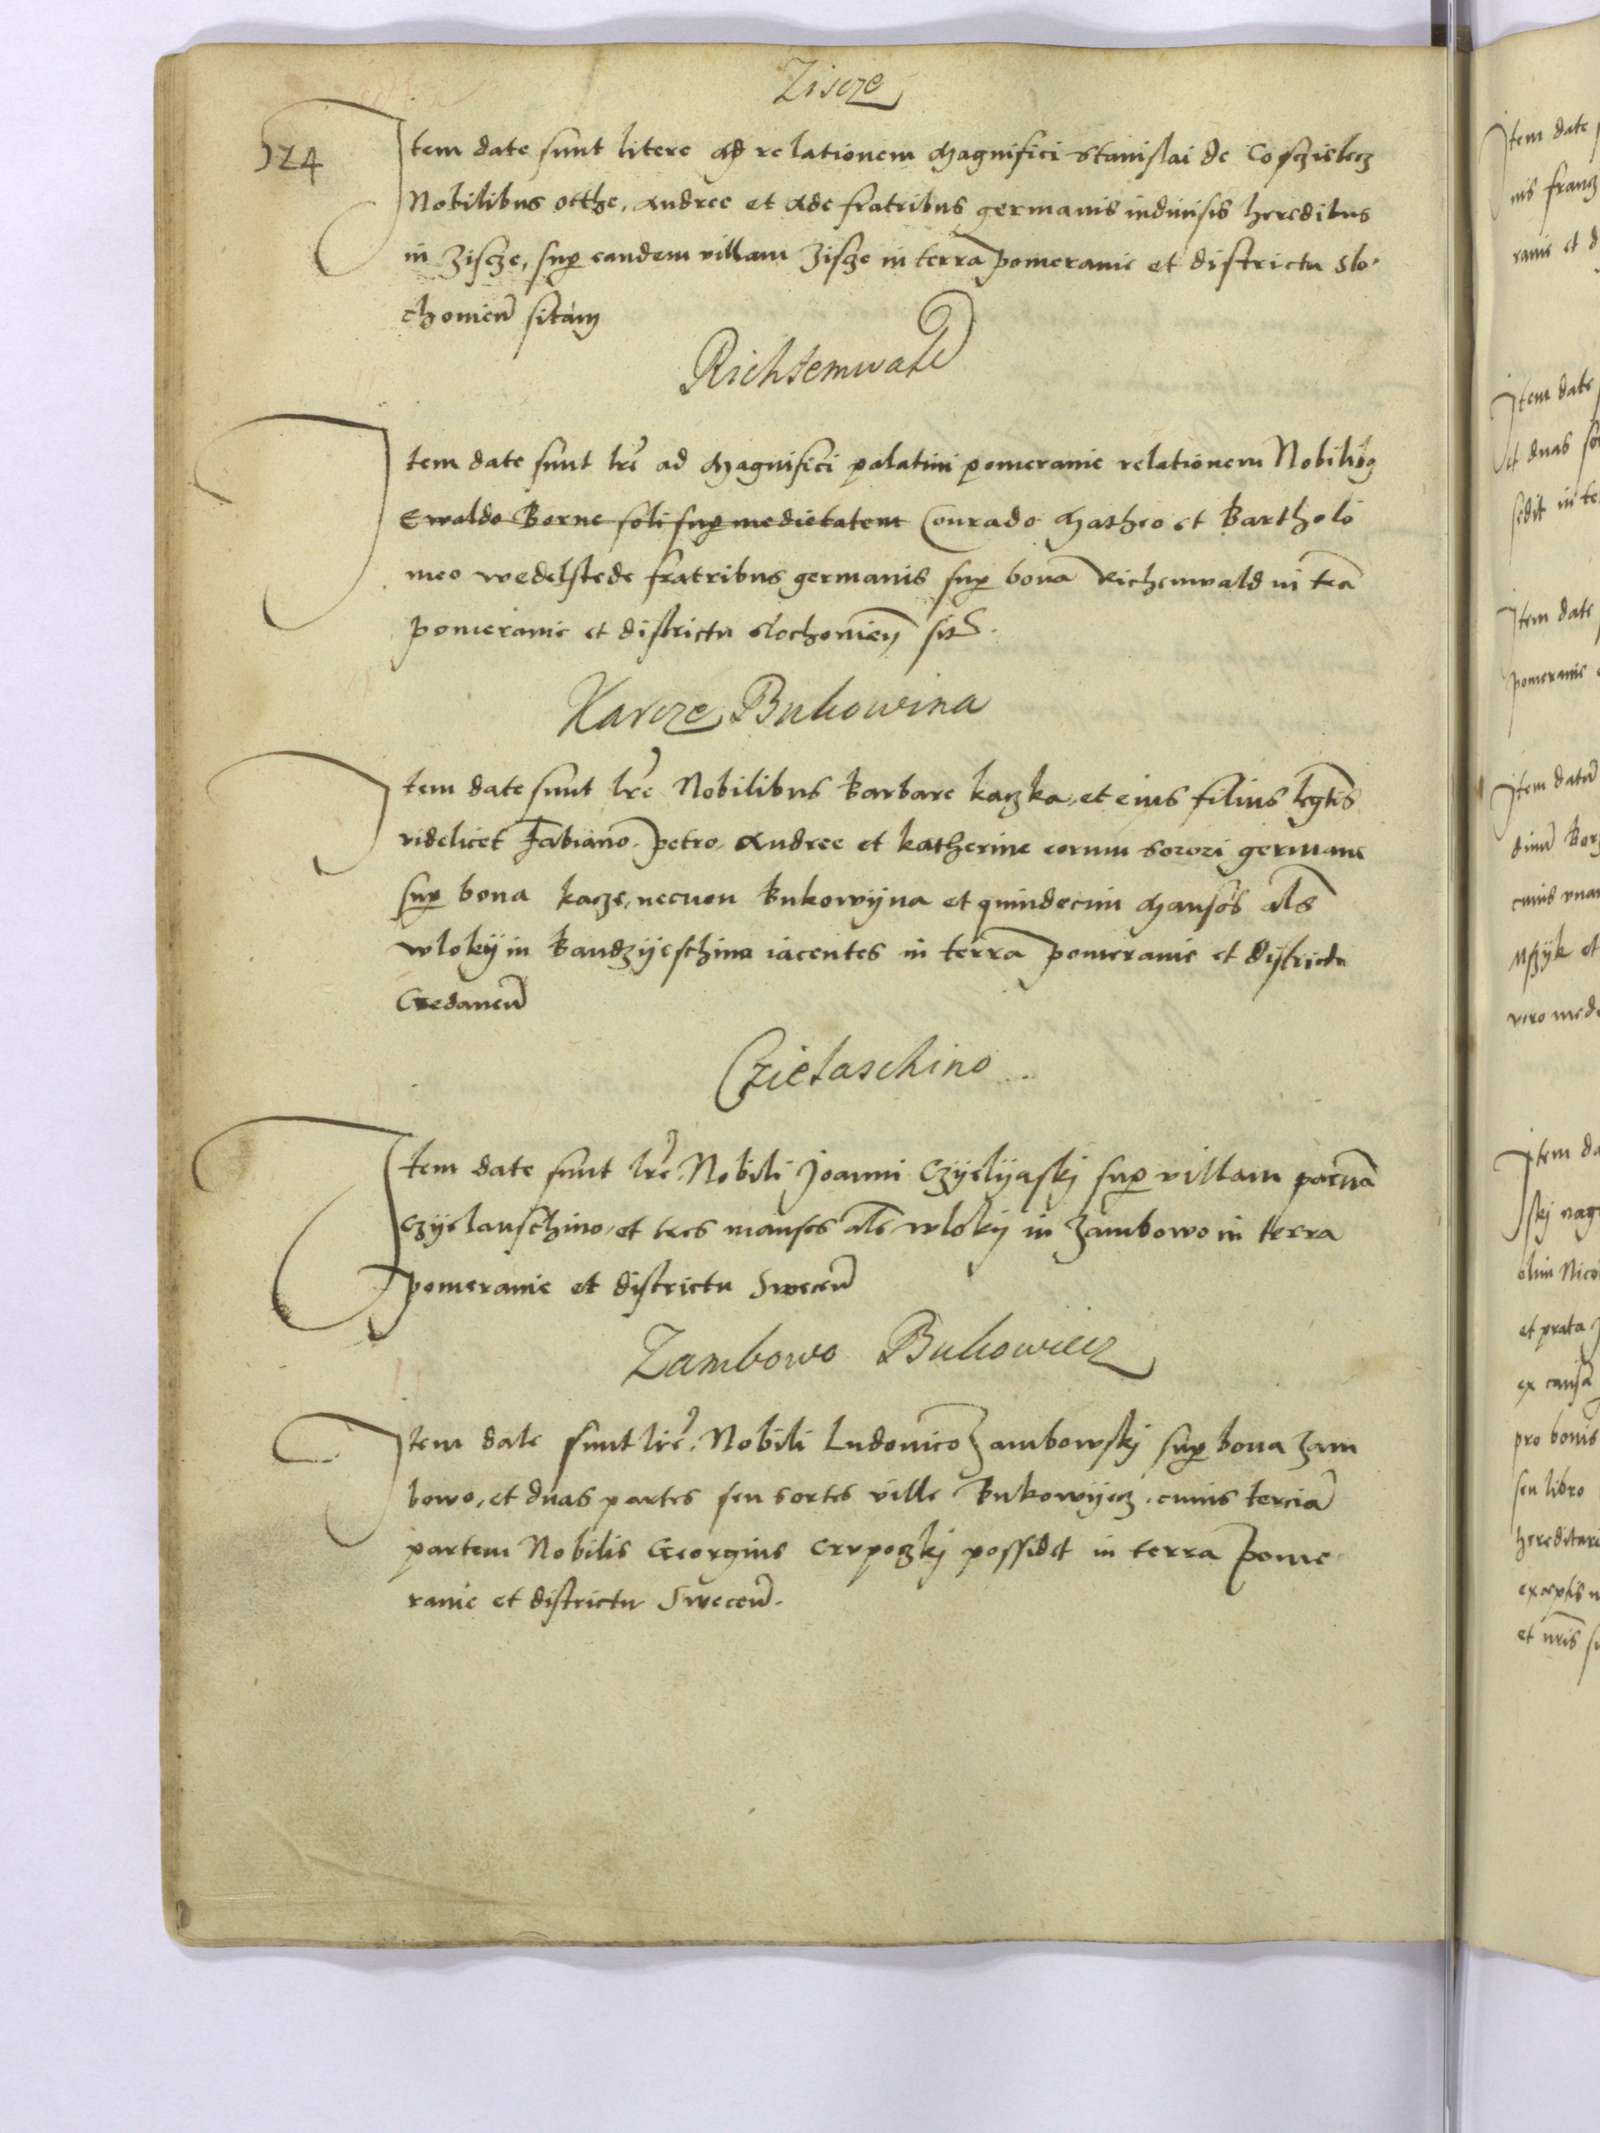 Ziscze
524
Item date sunt litere ad relationem Magnifici Stanislai de Cosczielecz
Nobilibus otthe, Andree et Ade fratribus germanis indivisis heredibus
in Ziscze, sup eandem villam Ziscze in terra pomeranie et districtu Slo-
chonien sitam
Richtemwald
Item date sunt lre ad Magnifici palatini pomeranie relationem Nobilibus
Ewaldo Borne soli sup medietatem Conrado Matheo et Bartholo
meo Wedelstede fratribus germanis sup bona Richenwald in tra
pomeranie et districtu Slochonien sit
Karcze Bukowina
Item date sunt lre Nobilibus Barbare kaczka, et eius filius legtis
videlicet Fabiano, petro, Andree et katherine eorum sorori germane
sup bona kacze, necnon Bukowyna et quindecim Mansos als
wloky in Bandzyeschino iacentes in terra pomeranie et districtu
Gedanen
Czielaschino
Item date sunt lre Nobili Joanni Czyelyaskj sup villam parvam
Czyelauschino, et tres mansos als wloky in Zambowo in terra
pomeranie et districtu Swecen
Zambowo Bukowiecz
Item date sunt lre Nobili Ludovico Zambowskj sup bona Zam
bowo, et duas partes seu sortes ville Bukowyecz, cuius tercia
partem Nobilis Georgius Crupoczkj possidet in terra pome
ranie et districtu Swecen.
Item date
nis
ranie et d
Item date
et duas
sedit in te
Item date
pomeranie
Item
cuius
et
vero
Item da
skj
olim Nico
et prata
ex causa
pro bonis
seu libro
hereditari
exceptis
et